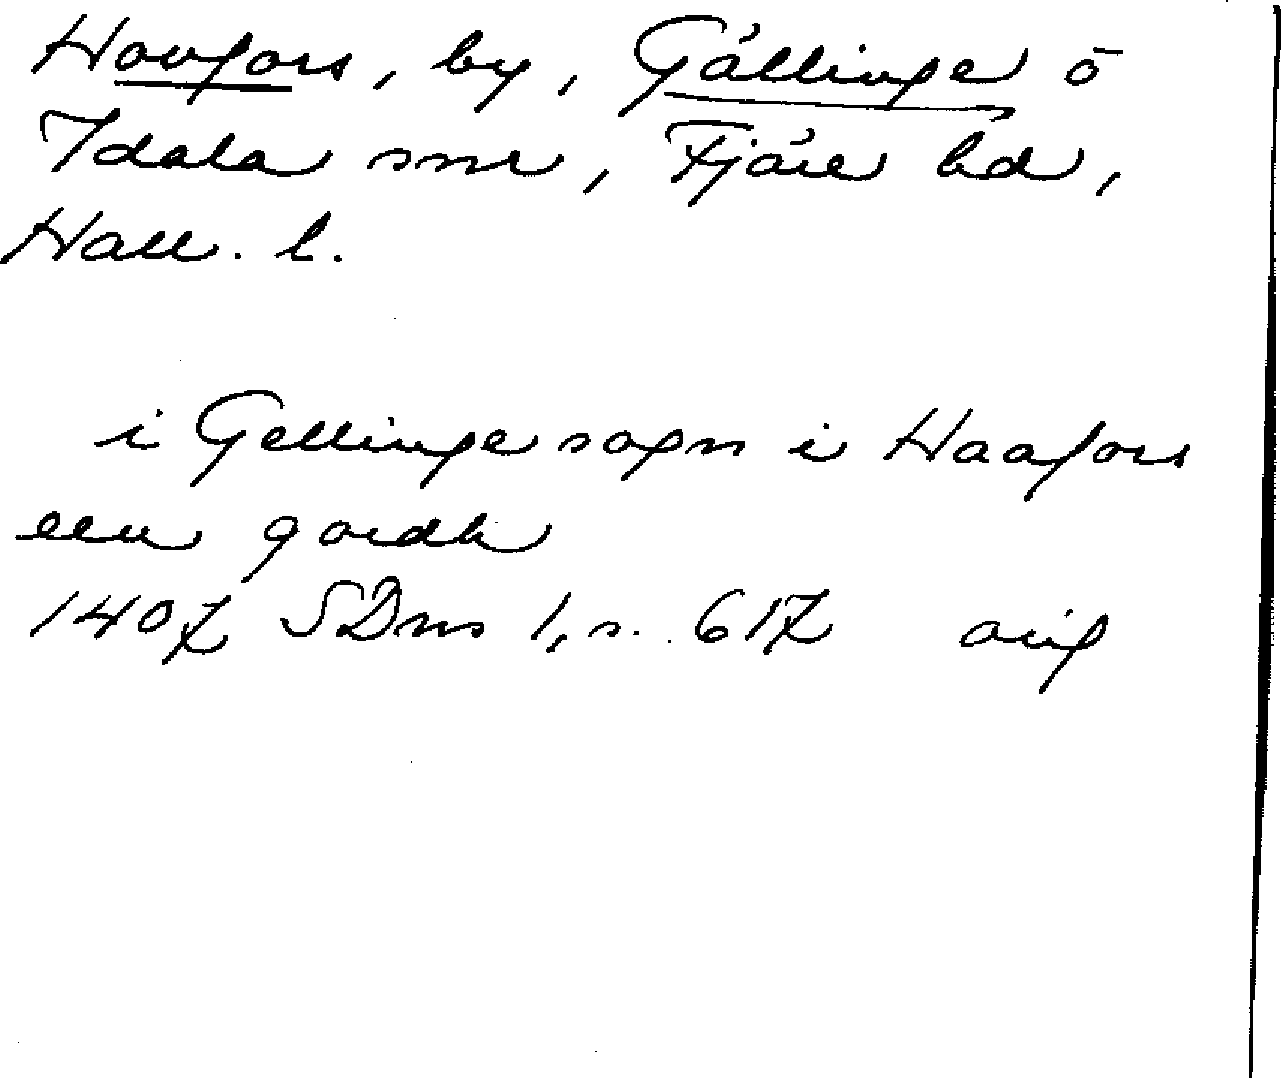 Hovfors, by, Gällinge o
Idala snr, Fjäre hd,
Hall. l.
i Gellinge sogn i Haafors
een gardh
1407 SDns 1, s. 617 orig